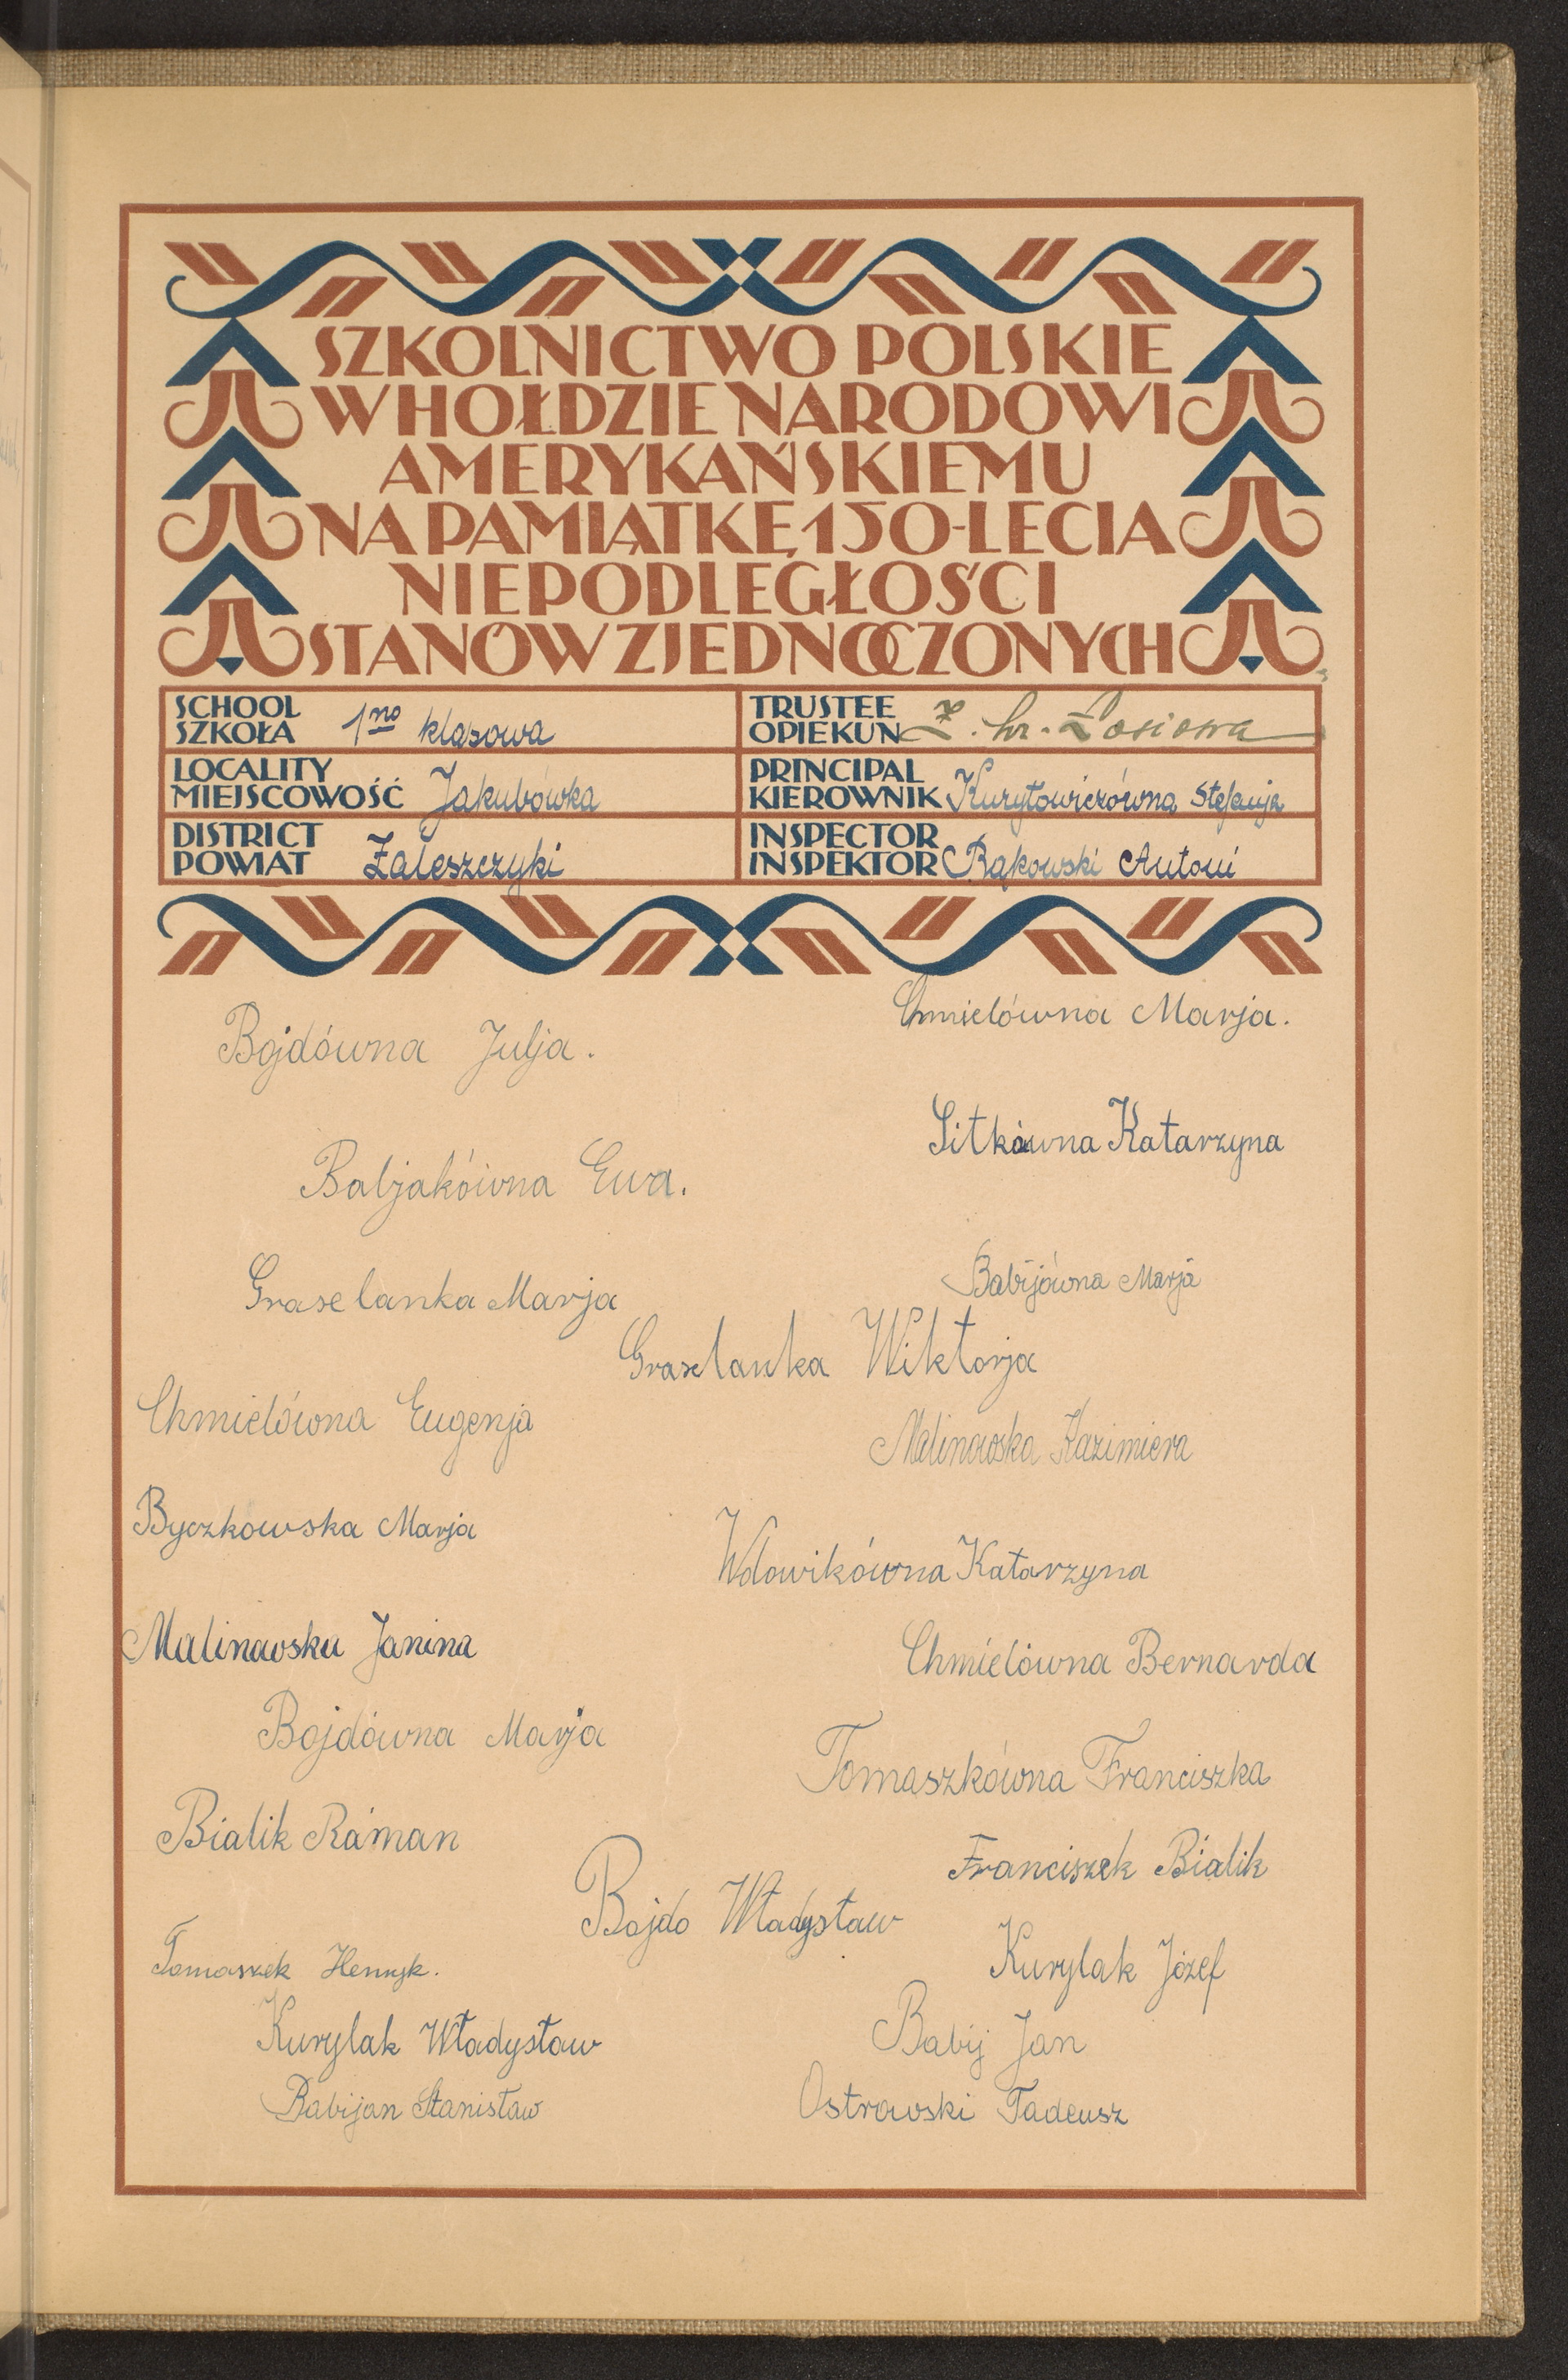 SZKOLNICTWO POLSKIE
W HOŁDZIE NARODOWI
AMERYKAŃSKIEMU
NA PAMIĄTKĘ 150-LECIA
NIEPODLEGŁOŚCI
STANÓW ZJEDNOCZONYCH
SCHOOL
SZKOŁA 1no klasowa
TRUSTEE
OPIEKUN Z. hr. Łosiowa
LOCALITY
MIEJSCOWOŚĆ Jakubówka
PRINCIPAL
KIEROWNIK Kuryłowiczówna Stefanja
DISTRICT
POWIAT Zaleszczyki
INSPECTOR
INSPEKTOR Rąkowski Antoni
Chmielówna Marja.
Bojdówna Julja.
Sitkówna Katarzyna
Babjakówna Ewa.
Babijówna Marja
Graselanka Marja
Graselanka Wiktorja
Chmielówna Eugenja
Malinowska Kazimiera
Byczkowska Marja
Wdowikówna Katarzyna
Malinowska Janina
Chmielówna Bernarda
Bojdówna Marja
Tomaszkówna Franciszka
Bialik Roman
Franciszek Bialik
Bojdo Władysław
Tomaszek Henryk.
Kurylak Józef
Kurylak Władysław
Babij Jan
Babijan Stanisław
Ostrowski Tadeusz